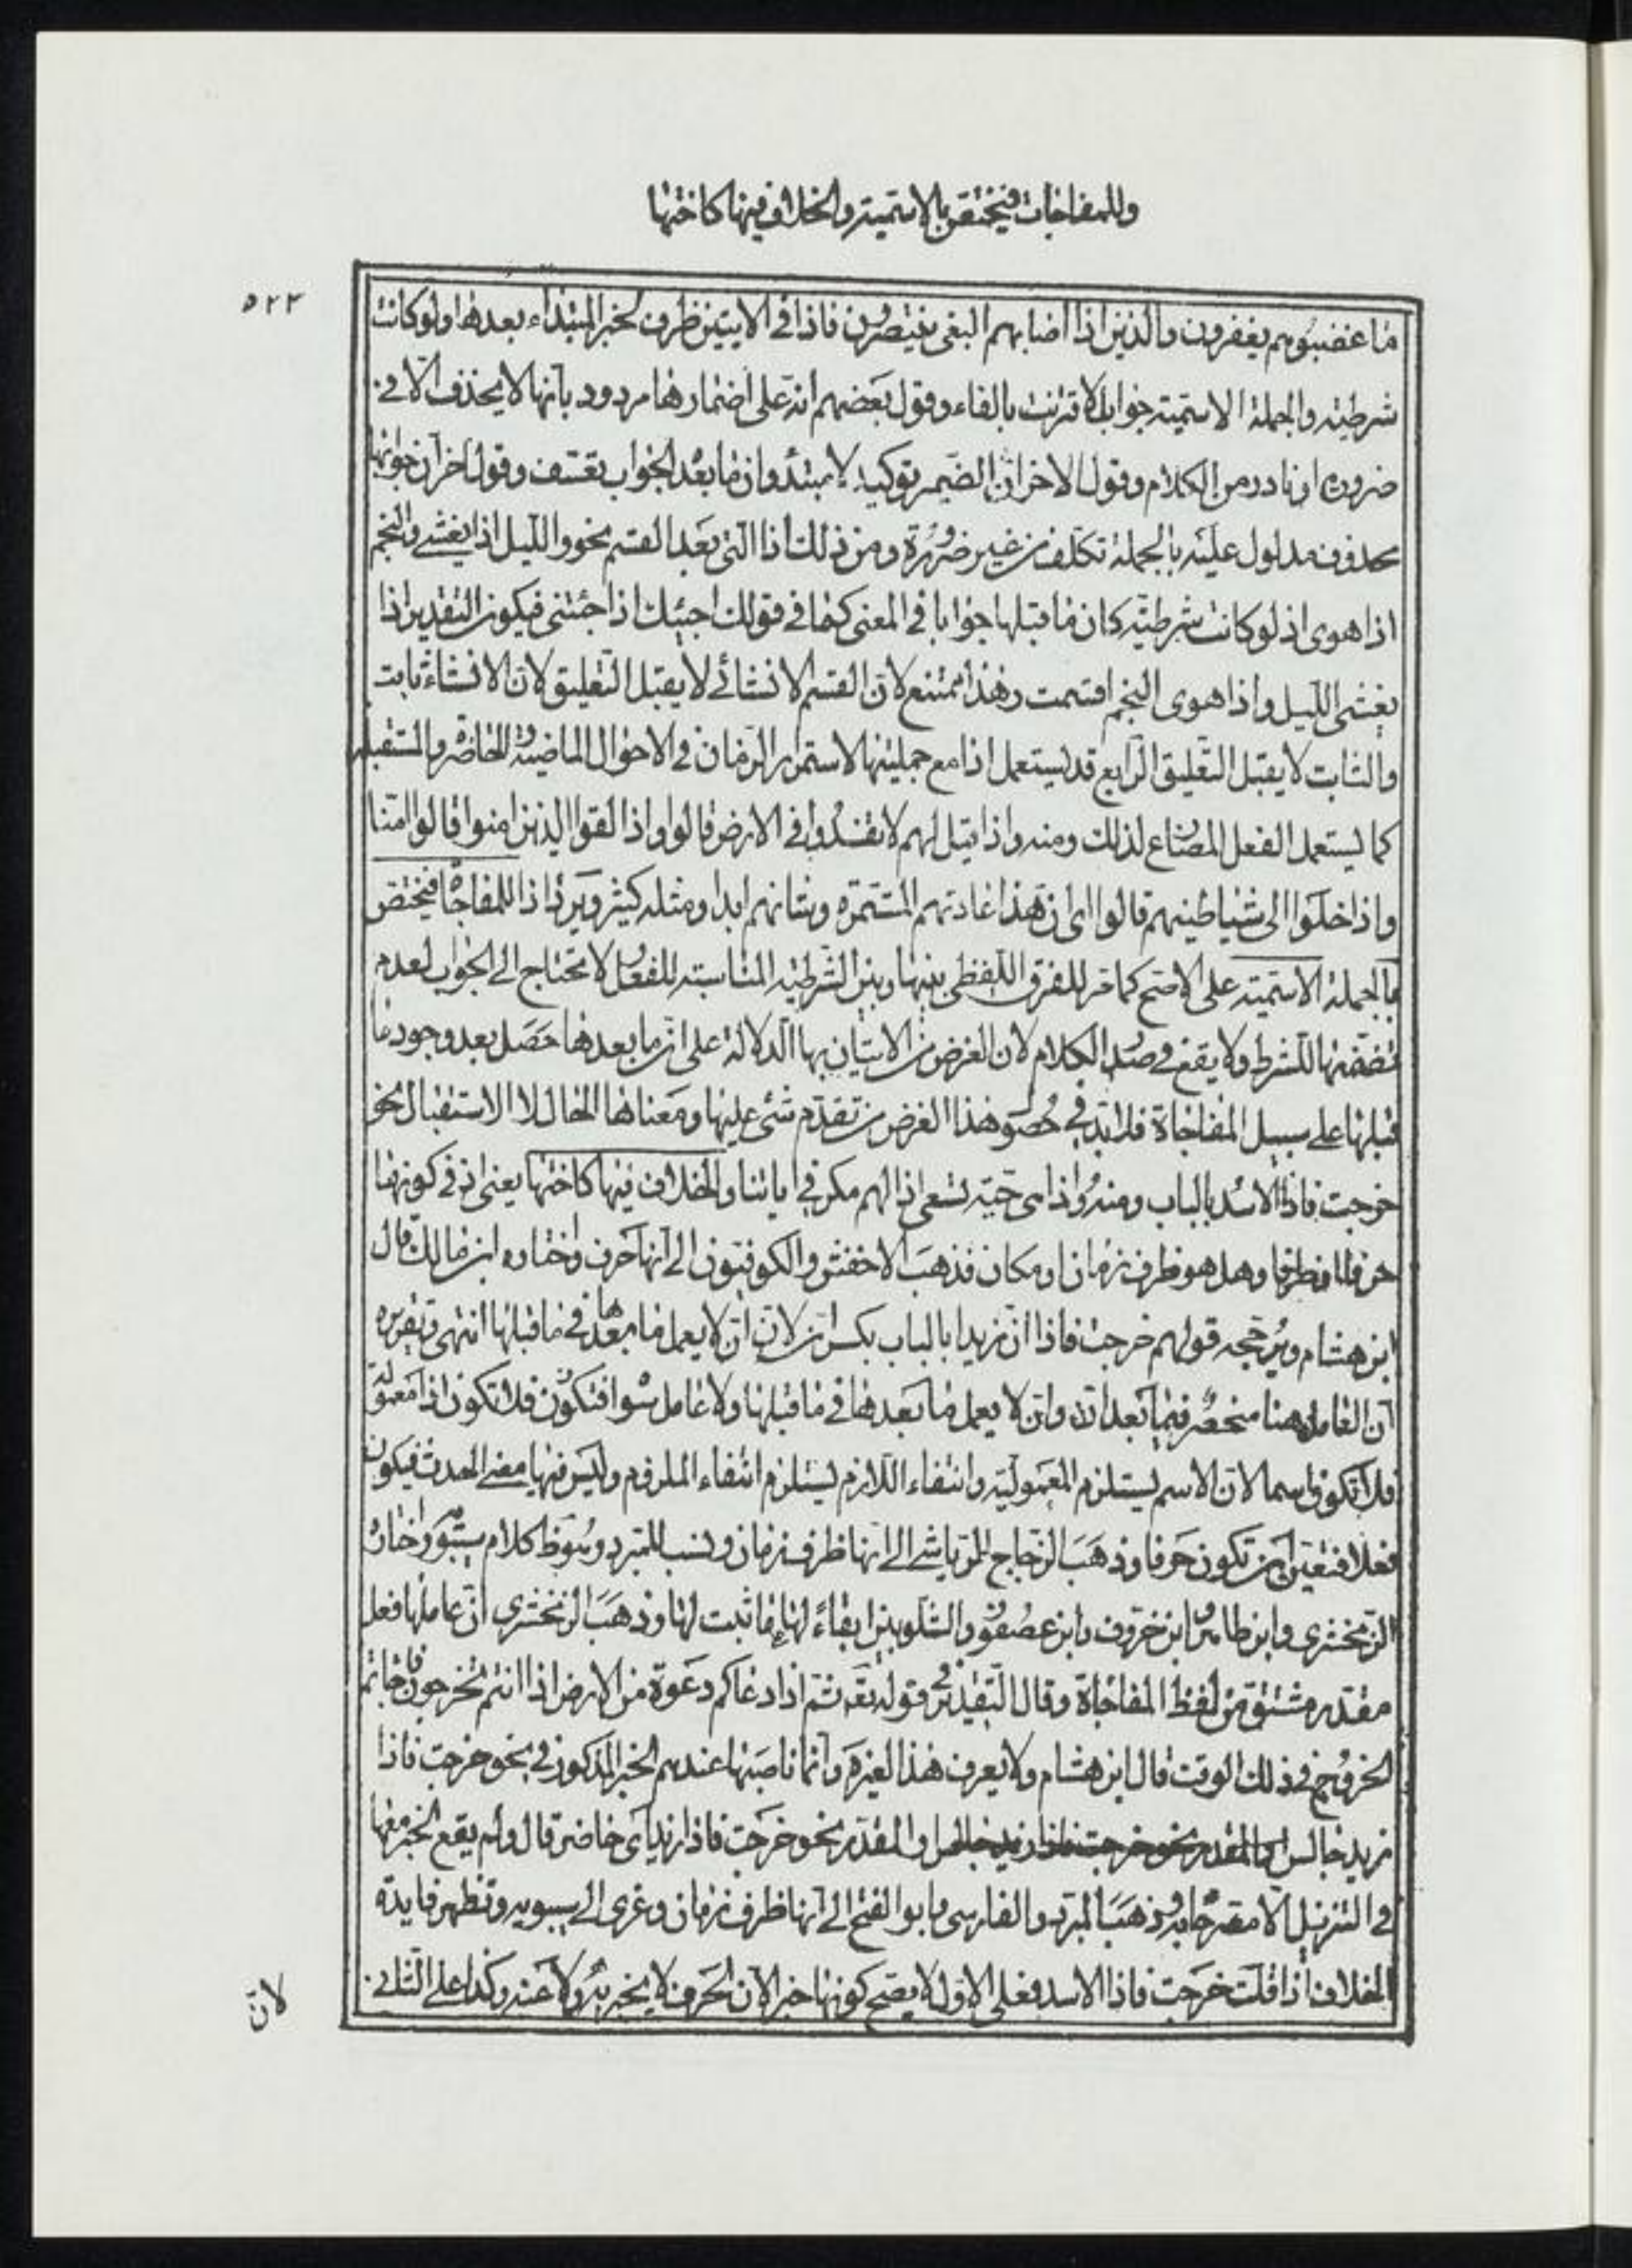 وللمفاجات فيختص بالاسمية والخلاف فيها كاختها
٥٢٢
ما غضبوا هم يغفرون والذين اذا اصابهم البغى هم ينتصرون فاذا فى الايتين ظرف لخبر المبتداء بعدها ولو كانت
شرطية والجملة الاسمية جوابا لاقترنت بالفاء وقول بعضهم انه على اضمارها مردود بانها لا يحذف الا فى
ضرورة او نادر من الكلام وقول الاخر ان الضمير توكيد لا مبتدأ وان ما بعد الجواب تعسف وقول اخر ان جوابها
محذوف مدلول عليه بالجملة تكلف من غير ضرورة ومن ذلك اذا التى بعد القسم نحو والليل اذا يغشى والنجم
اذا هوى اذ لو كانت شرطية كان ما قبلها جوابا فى المعنى كما فى قولك اجيئك اذا جئتنى فيكون التقدير اذا
يغشى الليل واذا هوى النجم اقسمت وهذا ممتنع لان القسم الانشائى لا يقبل التعليق لان الانشاء ثابت
والثابت لا يقبل التعليق الرابع قد يستعمل اذا مع جملتها لاستمرار الزمان فى الاحوال الماضية والحاضرة والمستقبلة
كما يستعمل الفعل المضارع لذلك ومنه واذا قيل لهم لا تفسدوا فى الارض قالوا واذا لقوا الذين امنوا قالوا امنا
واذا خلوا الى شياطينهم قالوا اى ان هذا عادتهم المستمرة وشانهم ابدا ومثله كثير ويرد اذا للمفاجاة فيختص
بالجملة الاسمية على الاصح كما مر للفرق اللفظى بينها وبين الشرطية المناسبة للفعل لا تحتاج الى الجواب لعدم
تضمنها للشرط ولا يقع فى صدر الكلام لان الغرض من الاتيان بها الدلالة على ان ما بعدها حصل بعد وجود ما
قبلها على سبيل المفاجاة فلا بد فى حصول هذا الغرض من تقدم شئ عليها ومعناها الحال لا الاستقبال نحو
خرجت فاذا الاسد بالباب ومنه فاذا هى حية تسعى اذا لهم مكر فى اياتنا والخلاف فيها كاختها يعنى ان فى كونها
حرفا او ظرفا وهل هو ظرف زمان او مكان فذهب الاخفش والكوفيون الى انها حرف واختاره ابن مالك قال
ابن هشام ويرجحه قولهم خرجت فاذا ان زيدا بالباب بكسر ان لان ان لا يعمل ما بعدها فى ما قبلها انتهى وتقريره
ان العامل هنا منحصر فيما بعد ان وان لا يعمل ما بعدها فى ما قبلها ولا عامل سوا فتكون فلا تكون اذا معمولة
فلا تكون اسما لان الاسم يستلزم المعمولية وانتفاء اللازم يستلزم انتفاء الملزوم وليس فيها معنى الحدث فيكون
فعلا فتعين ان تكون حرفا وذهب الزجاج والرياشى الى انها ظرف زمان ونسب للمبرد كلام سيبويه واختاره
الزمخشرى وابن طاهر وابن خروف وابن عصفور والشلوبين ابقاء لها ما ثبت لها وذهب الزمخشرى ان عاملها فعل
مقدر مشتق من لفظ المفاجاة وقال التقدير فى قوله تعه ثم اذا دعاكم دعوة من الارض اذا انتم تخرجون فاجاتم
الخروج فى ذلك الوقت قال ابن هشام ولا يعرف هذا لغيره وانما ناصبها عندهم الخبر المذكور فى نحو خرجت فاذا
زيد جالس او المقدر نحو خرجت فاذا زيد اى حاضر قال ولم يقع الخبر معها
فى التنزيل الا مصرحا به وذهب المبرد والفارسى وابو الفتح الى انها ظرف زمان وعزى الى سيبويه وتظهر فايدة
الخلاف اذا قلت خرجت فاذا الاسد فعلى الاول لا يصح كونها خبرا لان الحرف لا يخبر به ولا عنه وكذا على الثانى
لان